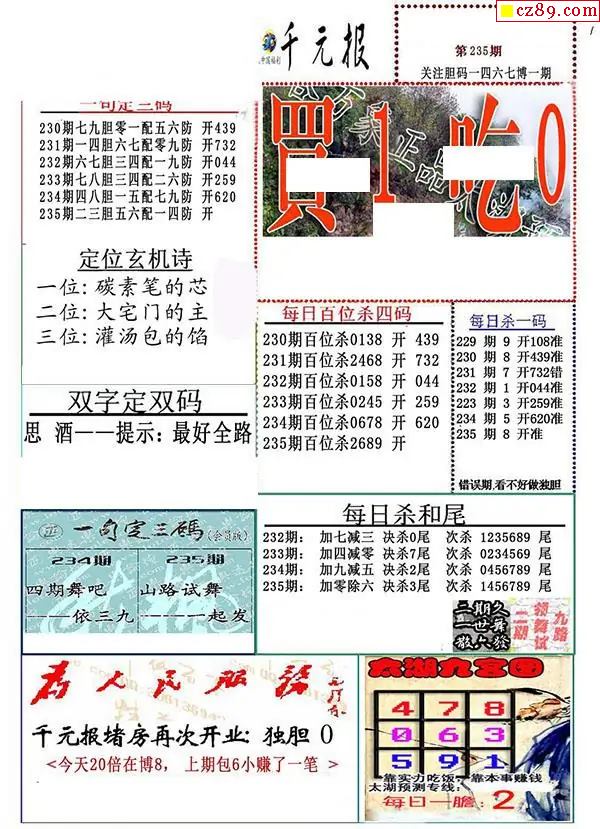 cz89.com
中国福利
千元报
第235期
关注胆码一四六七博一期
買1吃0
一句定三码
230期七九胆零一配五六防 开439
231期一四胆六七配零九防 开732
232期六七胆三四配一九防 开044
233期七八胆三四配二六防 开259
234期四八胆一五配七九防 开620
235期二三胆五六配一四防 开
定位玄机诗
一位:碳素笔的芯
二位:大宅门的主
三位:灌汤包的馅
每日百位杀四码
230期百位杀0138 开 439
231期百位杀2468 开 732
232期百位杀0158 开 044
233期百位杀0245 开 259
234期百位杀0678 开 620
235期百位杀2689 开
每日杀一码
229 期 9 开108准
230 期 8 开439准
231 期 7 开732错
232 期 1 开044准
223 期 3 开259准
234 期 5 开620准
235 期 8 开准
错误期,看不好做独胆
双字定双码
思 酒——提示:最好全路
一句定三碼(会员版)
234期
四期舞吧
——依三九
235期
山路试舞
——一起发
每日杀和尾
232期: 加七减三 决杀0尾 次杀 1235689 尾
233期: 加四减零 决杀7尾 次杀 0234569 尾
234期: 加九减五 决杀2尾 次杀 0456789 尾
235期: 加零除六 决杀3尾 次杀 1456789 尾
为人民服务
千元报堵房再次开业:独胆 0
<今天20倍在博8, 上期包6小赚了一笔 >
太湖九宫图
4 7 8
0 6 3
5 9 1
靠实力吃饭,靠本事赚钱
太湖预测专线:
每日一胆: 2